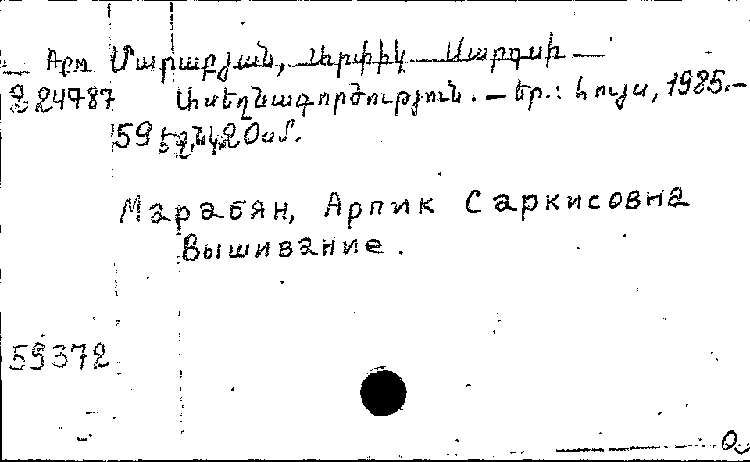 Арм Մարաբյան, Արփիկ Սարգսի
224787 Ասեղնագործություն. – Եր.: Հույս, 1985.–
59 էջ, նկ, 20 սմ.
Марабян, Арпик Саркисовна
Вышивание.
59372